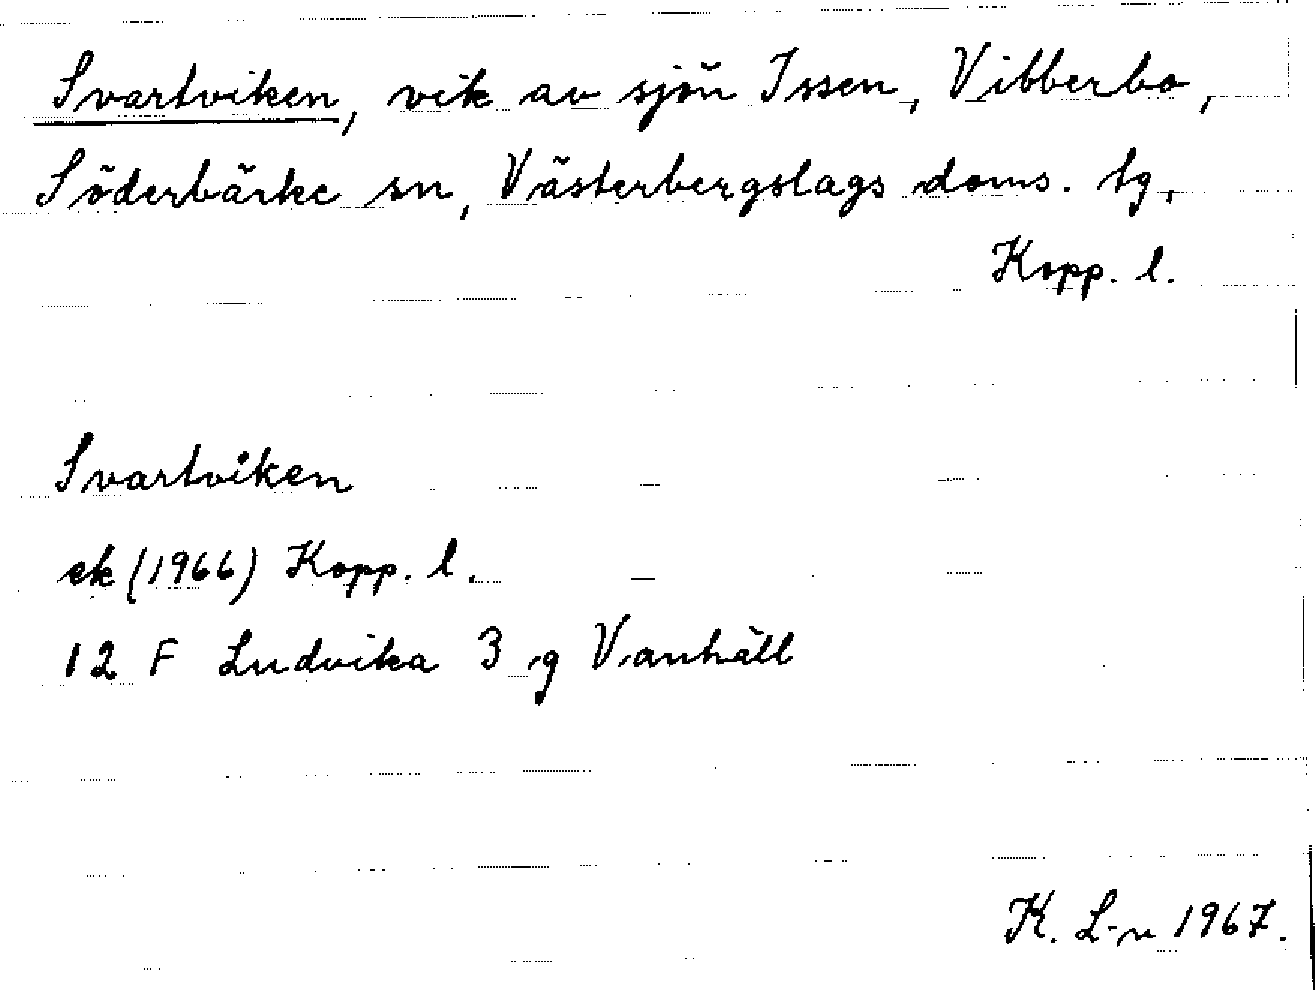 Svartviken, vik av sjön Issen, Vibberbo,
Söderbärke sn, Västerbergslags doms. tg,
Kopp. l.
Svartviken
ek (1966) Kopp. l.
12 F Ludvika 3 g Vanhäll
K. L-n 1967.